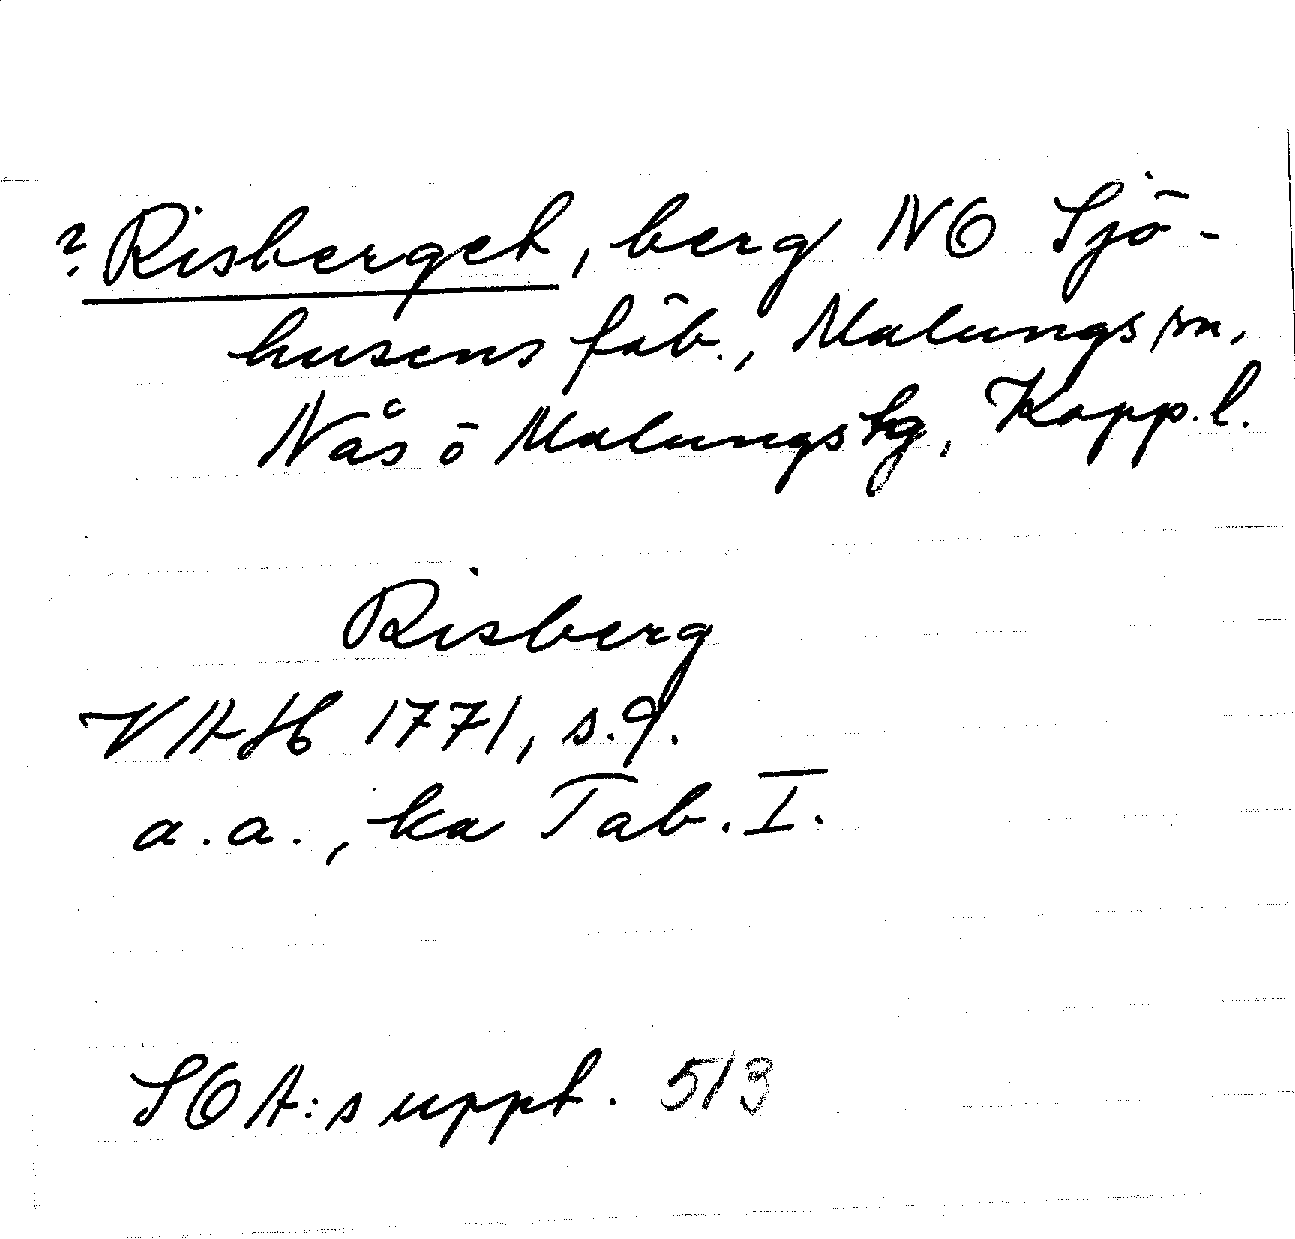 ? Risberget, berg NO Sjö-
husens fäb., Malungs sn,
Nås o Malungs tg, Kopp. l.
Risberg
VAH 1771, s. 9.
a.a., ka Tab. I.
SOA:s uppt. 513